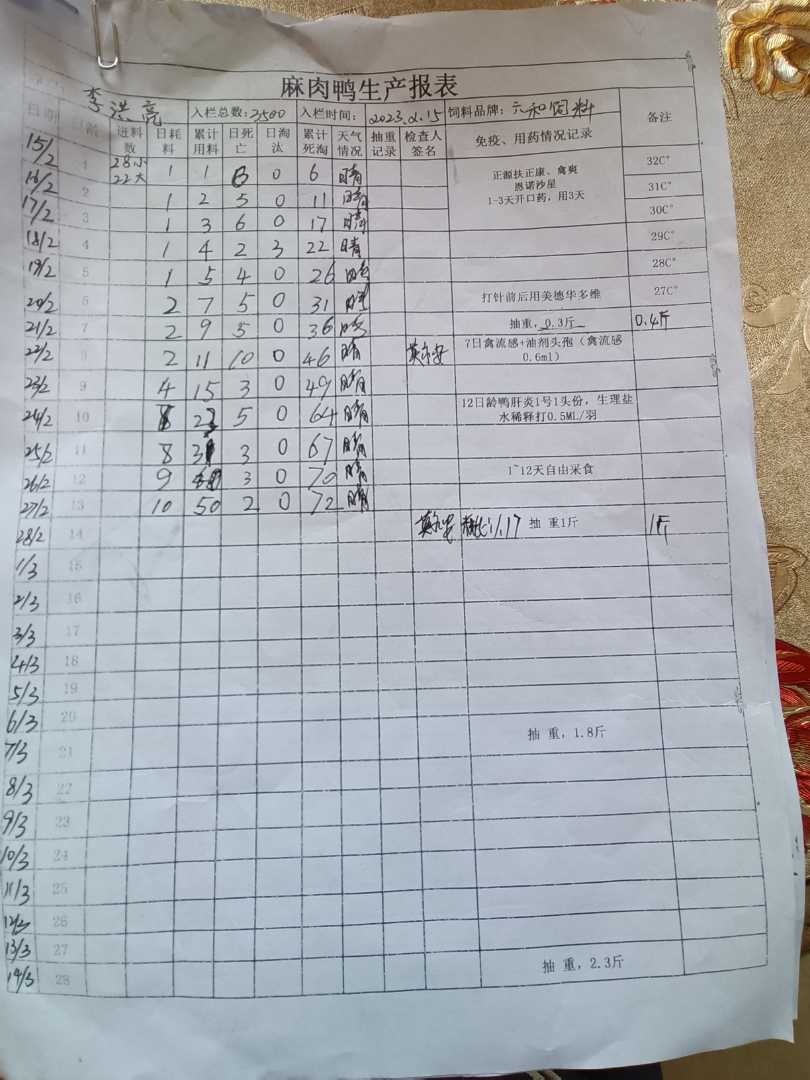 麻肉鸭生产报表
李洪亮 入栏总数:2500 入栏时间: 2023.2.15 饲料品牌: 六和饲料 备注
日期 日龄 进料数 日耗料 累计用料 日死亡 日淘汰 累计死淘 天气情况 抽重记录 检查人签名 免疫、用药情况记录
15/2 1 28小 22大 1 1 6 0 6 晴 正源扶正康、禽爽 32C°
恩诺沙星
16/2 2 1 2 5 0 11 晴 1-3天开口药，用3天 31C°
17/2 3 1 3 6 0 17 晴 30C°
18/2 4 1 4 2 3 22 晴 29C°
19/2 5 1 5 4 0 26 晴 28C°
20/2 6 2 7 5 0 31 晴 打针前后用美德华多维 27C°
21/2 7 2 9 5 0 36 晴 抽重，0.3斤 0.4斤
22/2 8 2 11 10 0 46 晴 7日禽流感+油剂头孢（禽流感
0.6ml）
23/2 9 4 15 3 0 49 晴
24/2 10 8 23 5 0 64 晴 12日龄鸭肝炎1号1头份，生理盐
水稀释打0.5ML/羽
25/2 11 8 31 3 0 67 晴
26/2 12 9 3 0 70 晴 1~12天自由采食
27/2 13 10 50 2 0 72 晴
28/2 14 1.17 抽 重1斤 1斤
1/3 15
2/3 16
3/3 17
4/3 18
5/3 19
6/3 20
7/3 21 抽 重，1.8斤
8/3 22
9/3 23
10/3 24
11/3 25
26
13/3 27
14/3 28 抽 重，2.3斤